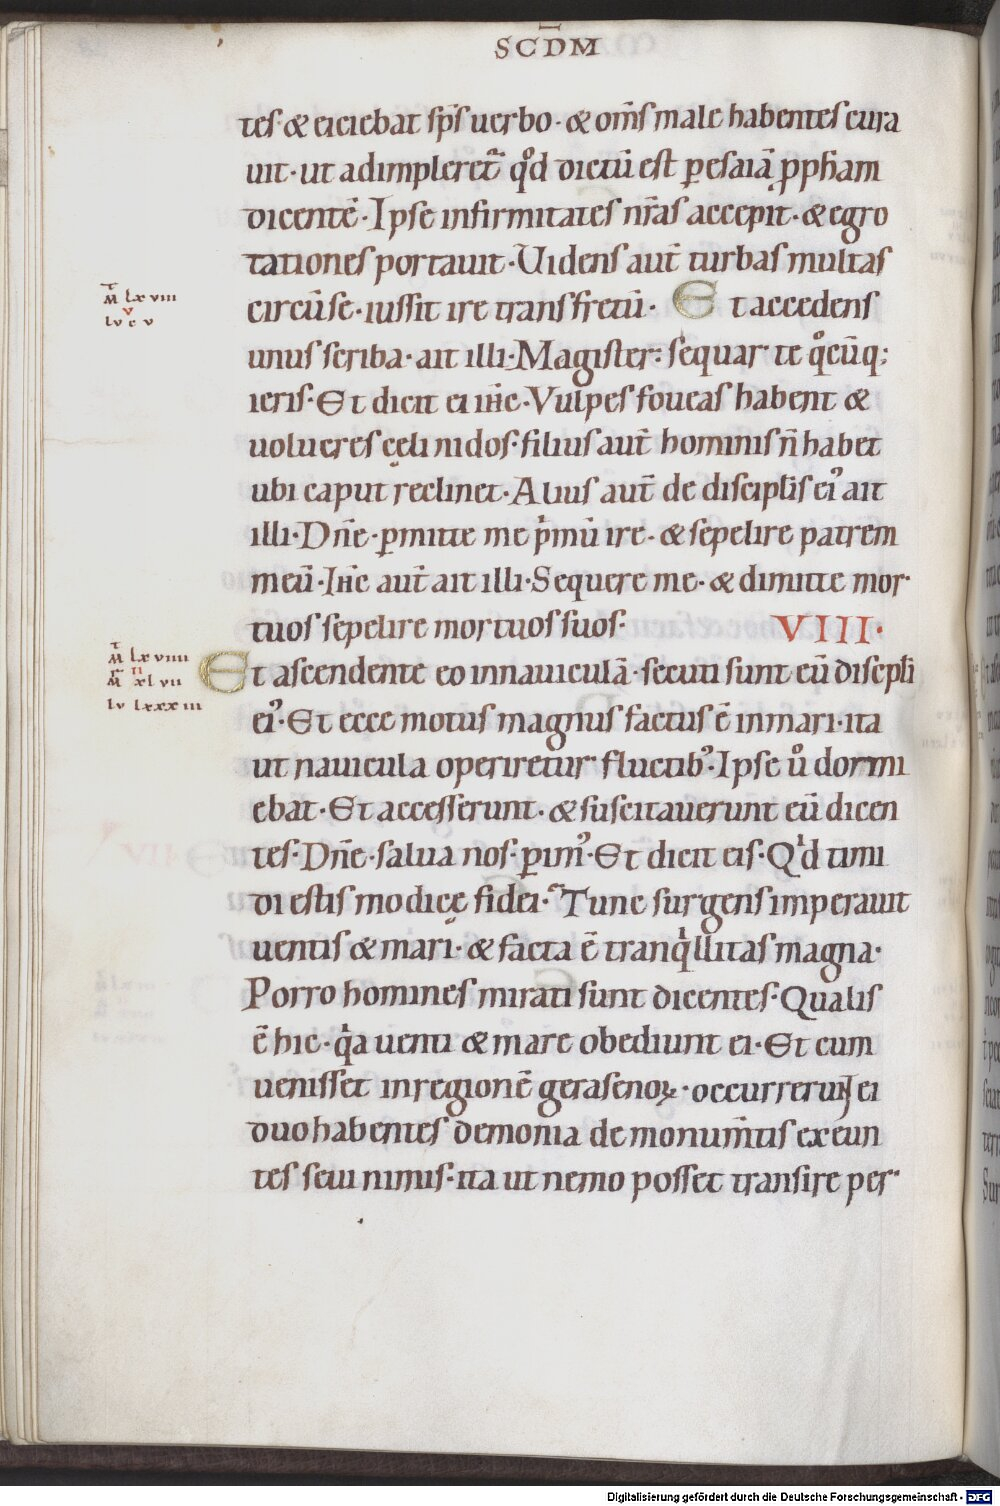 SCD̅M
tes· & eiciebat sp̅s uerbo· & om̅s male habentes cura
uit· ut adimpleret᷑ qͦd dictū est ꝑ esaiā ꝓph̅am
dicentē· Ipse infirmitates nr̅as accepit· & egro
tationes portauit· Uidens aut̅ turbas multas
circū se· iussit ire trans fretū· Et accedens
unus scriba· ait illi· Magister: sequar te qͦcūq;
ieris· Et dicit ei ih̅c· Vulpes foueas habent &
uolucres cęli nidos· filius aut̅ hominis n̅ habet
ubi caput reclinet· Alius aut̅ de discipl̅is ei᾽ ait
illi· Dn̅e· ꝑmitte me pͥmū ire· & sepelire patrem
meū· Ih̅c aut̅ ait illi· Sequere me· & dimitte mor
tuos sepelire mortuos suos· VIII·
M lxviii
v
lv c v
Et ascendente eo in nauiculā· secuti sunt eū discipl̅i
ei᾽· Et ecce motus magnus factus ē in mari· ita
ut nauicula operiretur fluctib᾽· Ipse uͦ dormi
ebat· Et accesserunt· & suscitauerunt eū dicen
tes· Dn̅e· salua nos· ꝑim᾽· Et dicit eis· Qͥd timi
di estis modicę fidei· Tunc surgens imperauit
uentis & mari· & facta ē tranqͥllitas magna·
Porro homines mirati sunt dicentes· Qualis
ē hic· qͥa uenti & mare obediunt ei· Et cum
uenisset in regionē gerasenoꝝ· occurrerunt ei
duo habentes demonia de monum̅tis exeun
tes seui nimis· ita ut nemo posset transire per
M lxviiii
M xlvii
lv lxxxiii
Digitalisierung gefördert durch die Deutsche Forschungsgemeinschaft - DFG